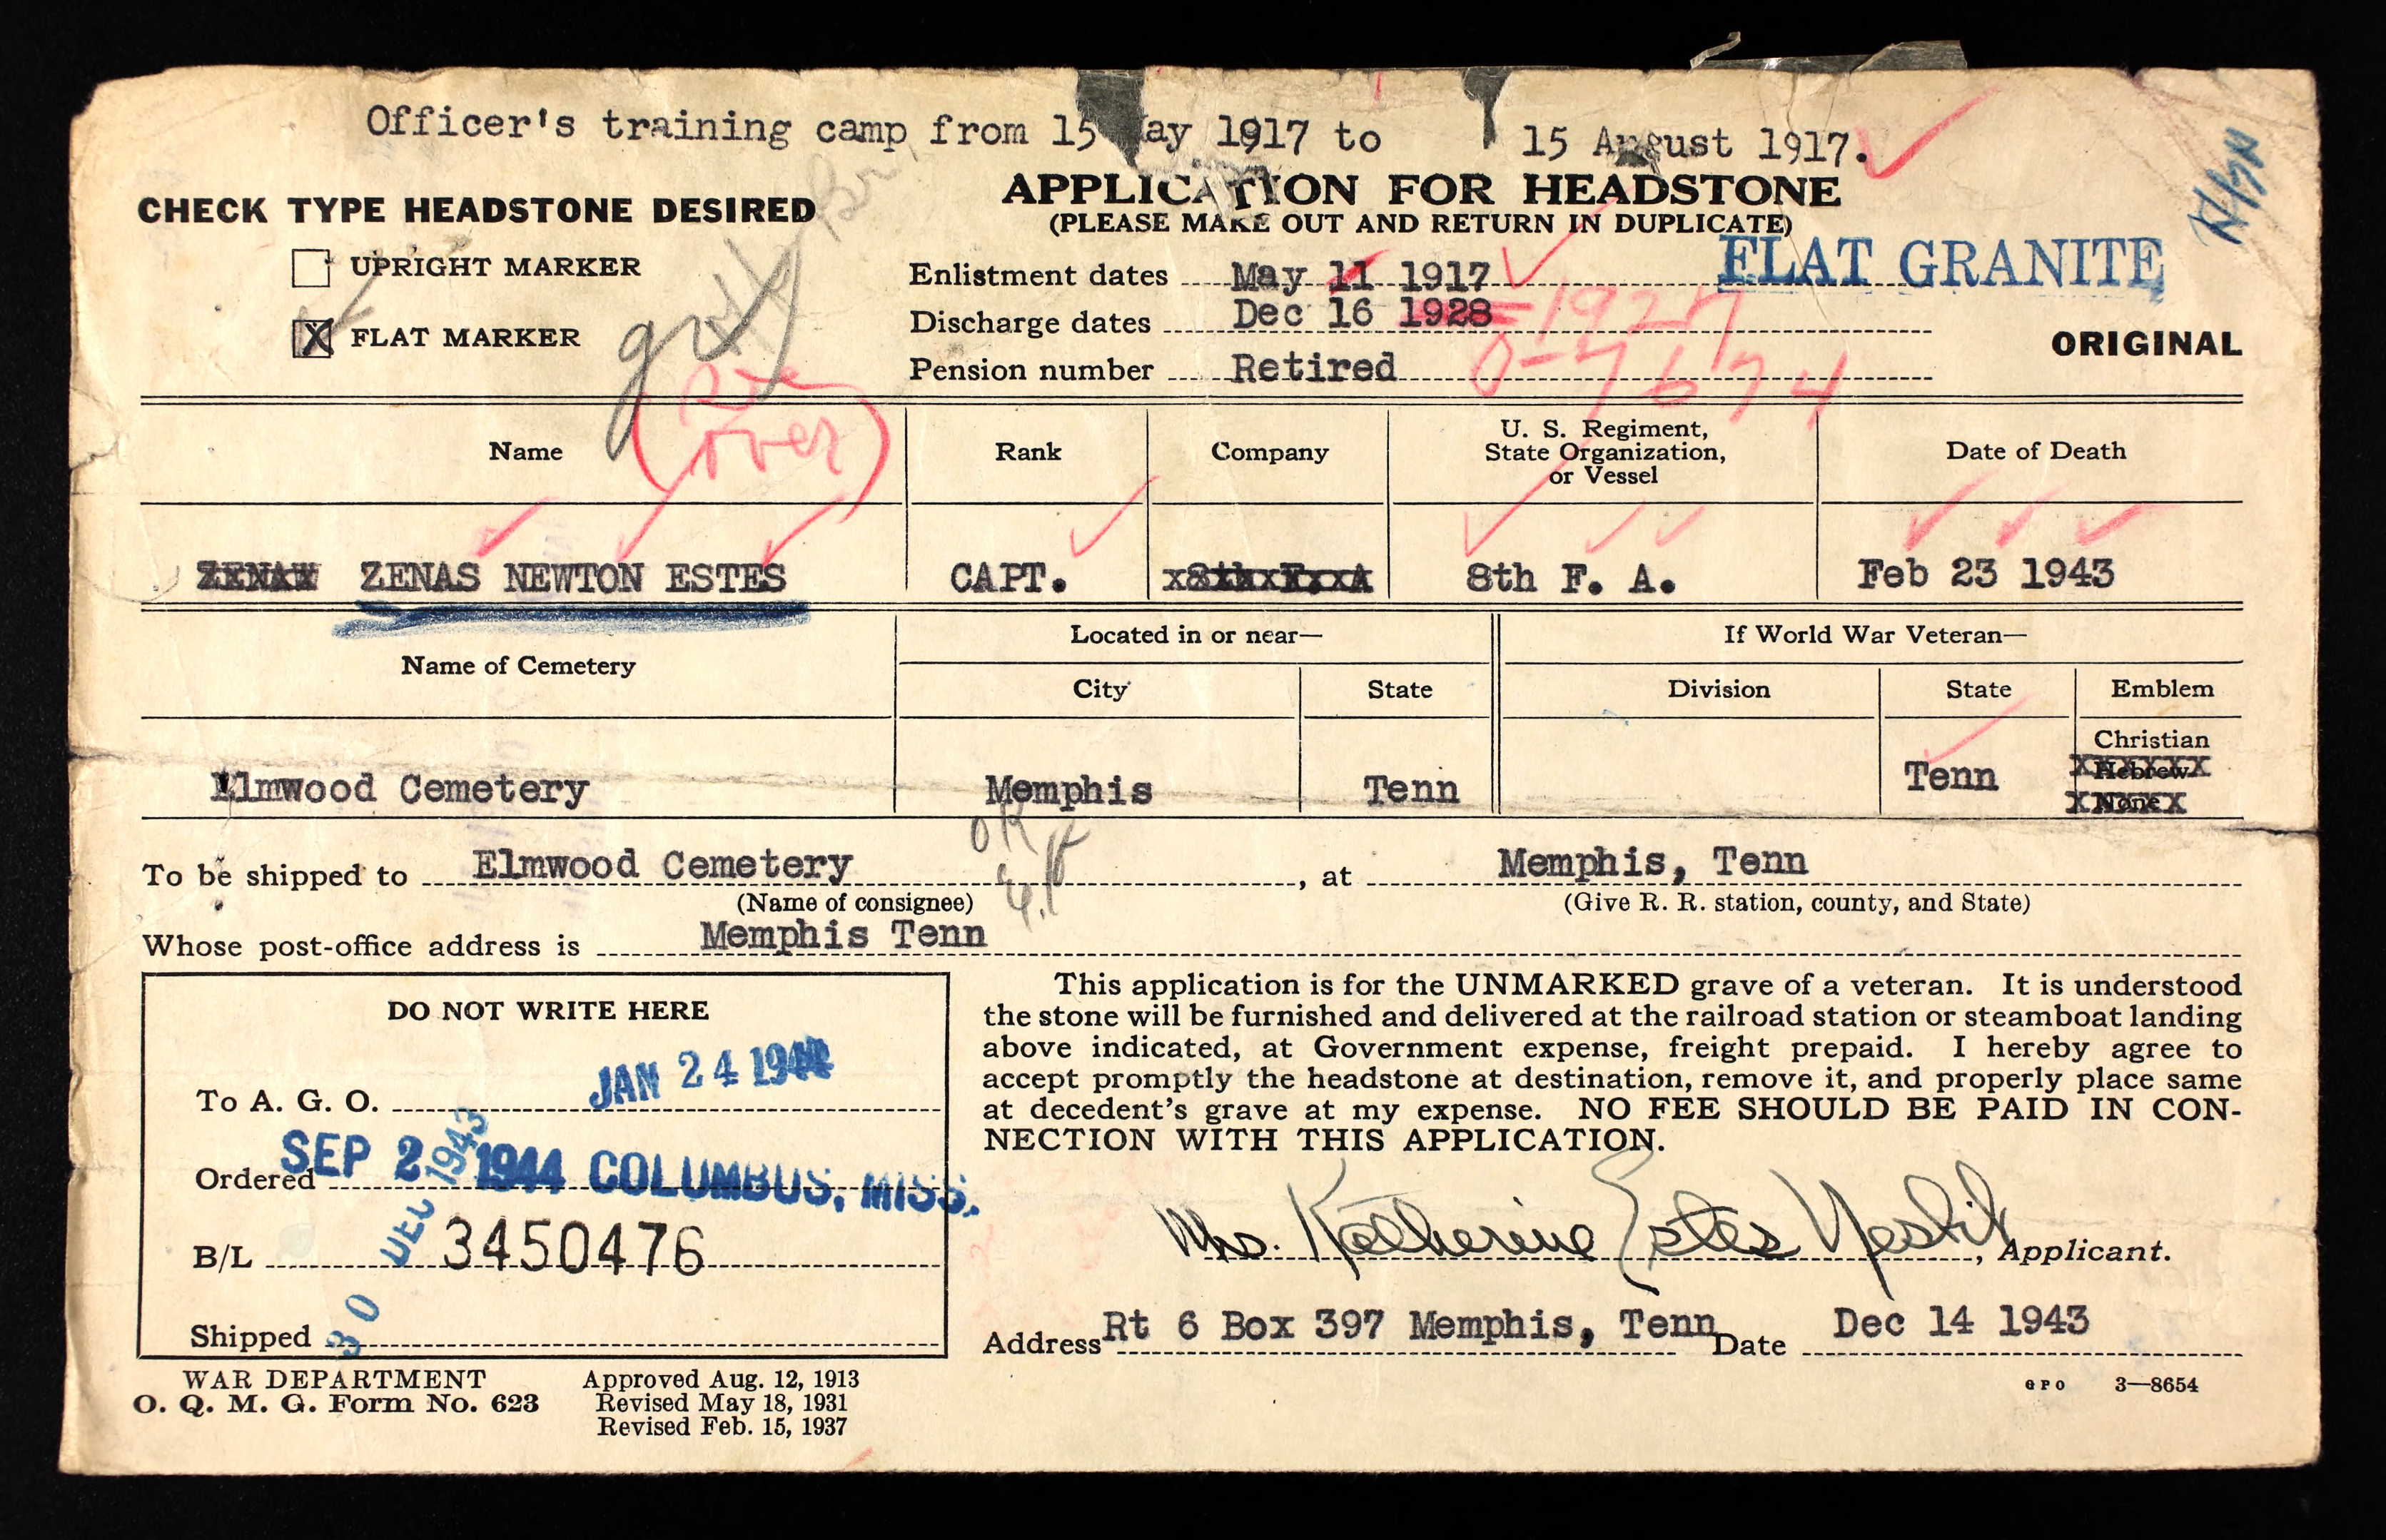 Officer's training camp from 15 May 1917 to 15 August 1917.
CHECK TYPE HEADSTONE DESIRED
UPRIGHT MARKER
X FLAT MARKER
(over)
APPLICATION FOR HEADSTONE
(PLEASE MAKE OUT AND RETURN IN DUPLICATE)
FLAT GRANITE
ORIGINAL
Enlistment dates May 11 1917
Discharge dates Dec 16 1928 - 1927
Pension number Retired 0-7674
Name
Rank
Company
U. S. Regiment,
State Organization,
or Vessel
Date of Death
ZENAS NEWTON ESTES
CAPT.
8th F. A.
8th F. A.
Feb 23 1943
Name of Cemetery
Located in or near—
City
State
If World War Veteran—
Division
State
Emblem
Elmwood Cemetery
Memphis
Tenn
Tenn
Christian
Hebrew
None
OK
To be shipped to Elmwood Cemetery, at Memphis, Tenn
(Name of consignee) (Give R. R. station, county, and State)
Whose post-office address is Memphis Tenn
DO NOT WRITE HERE
To A. G. O. JAN 24 1944
Ordered SEP 2 1944 COLUMBUS, MISS.
B/L 3450476
Shipped
30 DEC 1943
This application is for the UNMARKED grave of a veteran. It is understood
the stone will be furnished and delivered at the railroad station or steamboat landing
above indicated, at Government expense, freight prepaid. I hereby agree to
accept promptly the headstone at destination, remove it, and properly place same
at decedent's grave at my expense. NO FEE SHOULD BE PAID IN CON-
NECTION WITH THIS APPLICATION.
Mrs. Katherine Estes Nesbit, Applicant.
Address Rt 6 Box 397 Memphis, Tenn Date Dec 14 1943
WAR DEPARTMENT
O. Q. M. G. Form No. 623
Approved Aug. 12, 1913
Revised May 18, 1931
Revised Feb. 15, 1937
GPO 3—8654